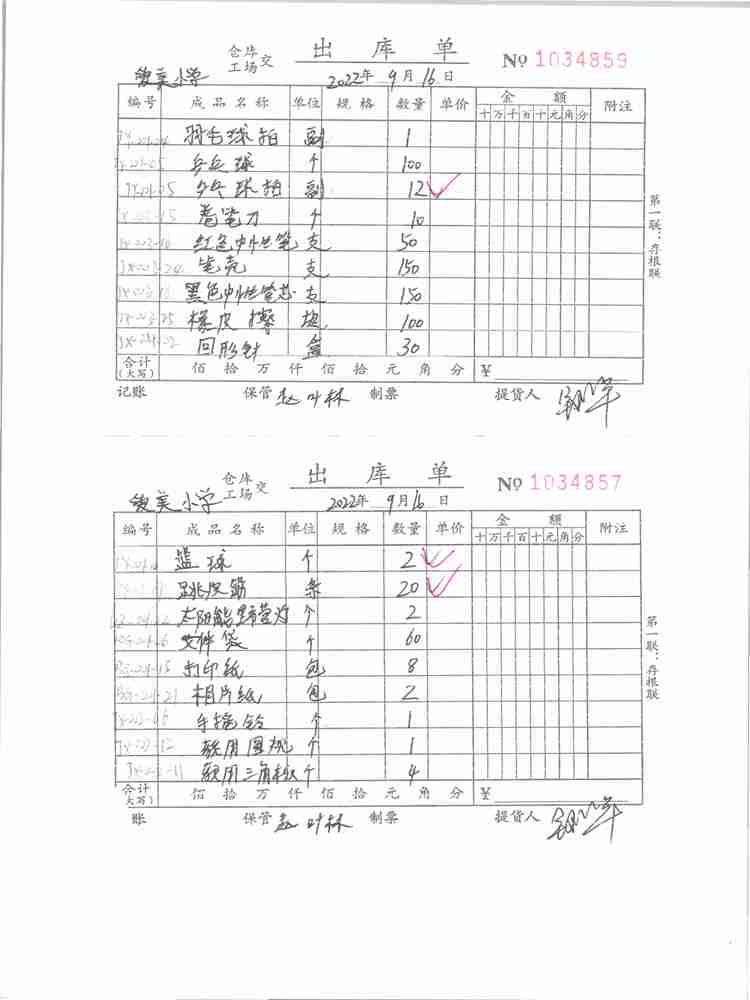 仓库 出库单 № 1034859
工场 交
小学 2022年9月16日
编号 成品名称 单位 规格 数量 单价 金额 附注
十万千百十元角分
羽毛球拍 副 1
乒乓球 个 100
乒乓球拍 副 12
卷笔刀 个 10
红色中性笔 支 50
笔壳 支 150
黑色中性笔芯 支 150
橡皮擦 块 100
回形针 盒 30
合计(大写) 佰拾万仟佰拾元角分 ¥
记账 保管 赵叶林 制票 提货人
第一联：存根联
仓库 出库单 № 1034857
工场 交
小学 2022年9月16日
编号 成品名称 单位 规格 数量 单价 金额 附注
十万千百十元角分
篮球 个 2
跳皮筋 条 20
太阳能野营灯 个 2
文件袋 个 60
打印纸 包 8
相片纸 包 2
手摇铃 个 1
教用圆规 个 1
教用三角板 个 4
合计(大写) 佰拾万仟佰拾元角分 ¥
账 保管 赵叶林 制票 提货人
第一联：存根联